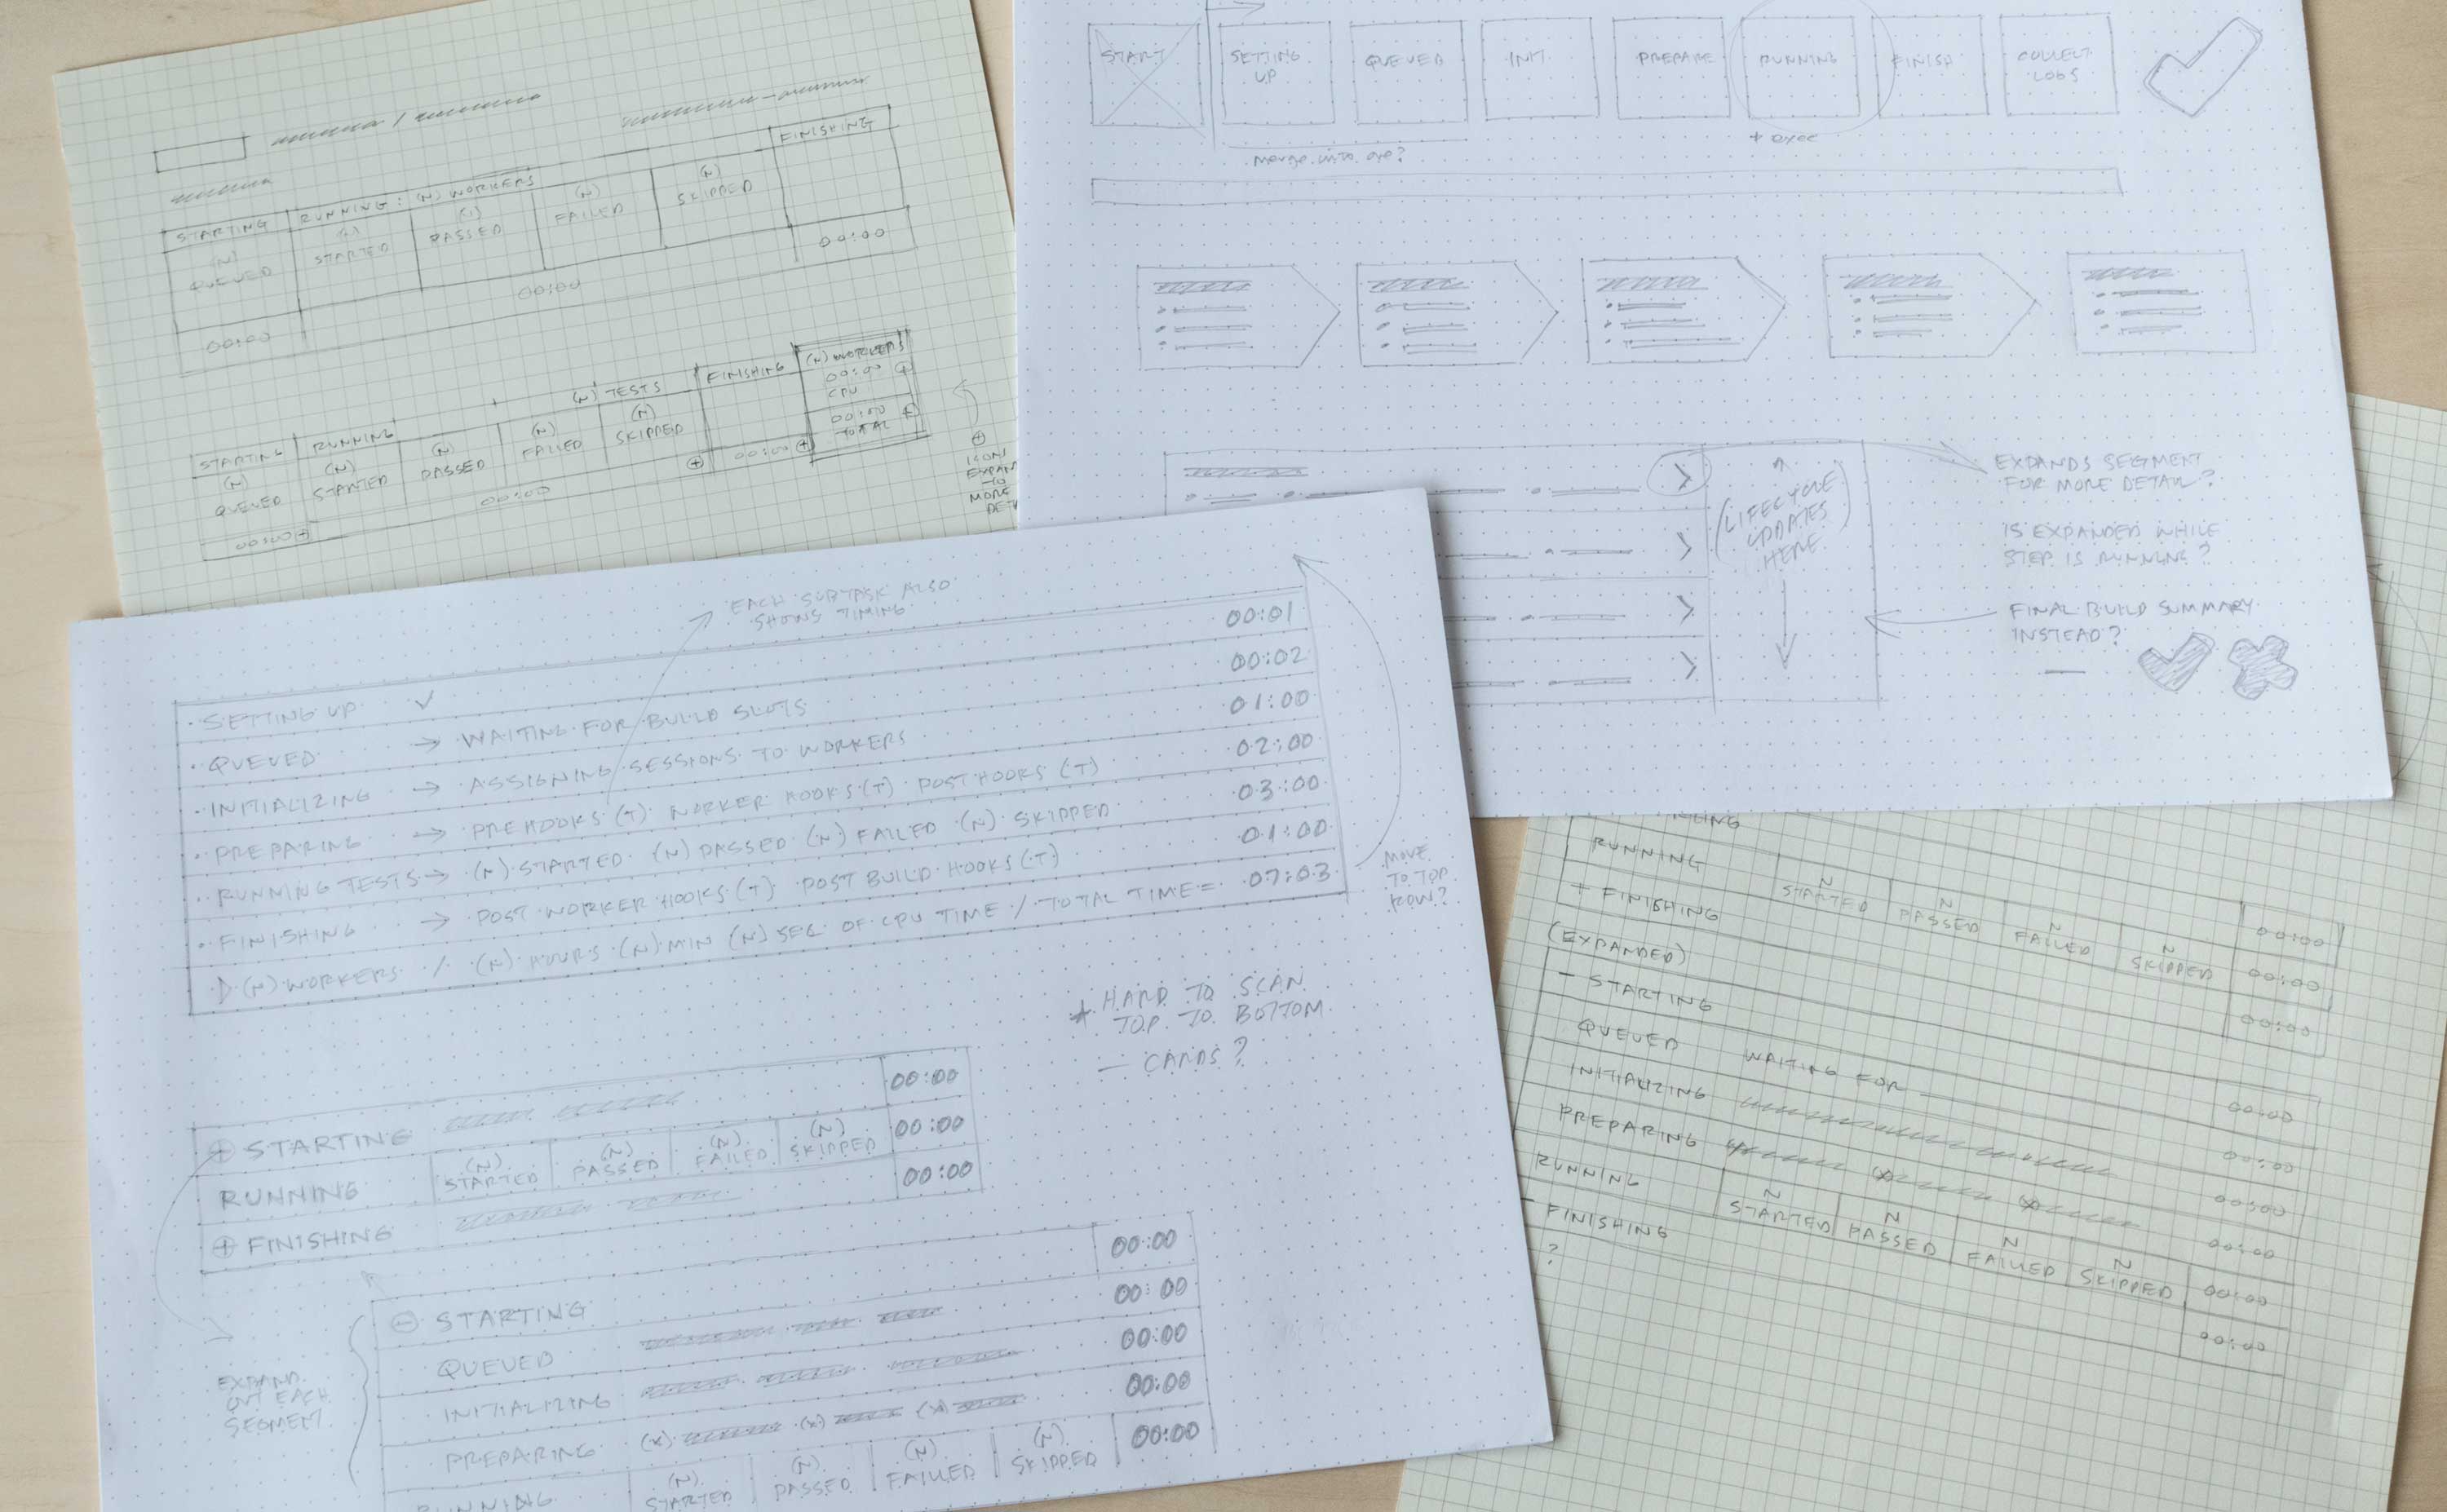 FINISHING
STARTING
RUNNING: (N) WORKERS
(N) QUEUED
(N) STARTED
(N) PASSED
(N) FAILED
(N) SKIPPED
00:00
00:00
00:00
(N) TESTS
FINISHING
(N) WORKERS
STARTING
RUNNING
(N) QUEUED
(N) STARTED
(N) PASSED
(N) FAILED
(N) SKIPPED
00:00
CPU
00:00
TOTAL
00:00
00:00
00:00
ICONS
EXPAND
TO
MORE
START
SETTING
UP
QUEUED
INIT
PREPARE
RUNNING
FINISH
COLLECT
LOGS
merge into one?
+ exec
(LIFECYCLE
UPDATES
HERE)
EXPANDS SEGMENT
FOR MORE DETAIL?
IS EXPANDED WHILE
STEP IS RUNNING?
FINAL BUILD SUMMARY
INSTEAD?
EACH SUBTASK ALSO
SHOWS TIMING
SETTING UP ✓ 00:01
QUEUED → WAITING FOR BUILD SLOTS 00:02
INITIALIZING → ASSIGNING SESSIONS TO WORKERS 01:00
PREPARING → PREHOOKS (T) WORKER HOOKS (T) POST HOOKS (T) 02:00
RUNNING TESTS → (N) STARTED (N) PASSED (N) FAILED (N) SKIPPED 03:00
FINISHING → POST WORKER HOOKS (T) POST BUILD HOOKS (T) 01:00
(N) WORKERS / (N) HOURS (N) MIN (N) SEC OF CPU TIME / TOTAL TIME = 07:03
MOVE
TO TOP
ROW?
* HARD TO SCAN
TOP TO BOTTOM
— CARDS?
+ STARTING 00:00
RUNNING (N) STARTED (N) PASSED (N) FAILED (N) SKIPPED 00:00
+ FINISHING 00:00
EXPAND
OUT EACH
SEGMENT
- STARTING 00:00
QUEUED 00:00
INITIALIZING 00:00
PREPARING (X) (X) 00:00
RUNNING (N) STARTED (N) PASSED (N) FAILED (N) SKIPPED 00:00
RUNNING N STARTED N PASSED N FAILED N SKIPPED 00:00
+ FINISHING 00:00
00:00
(EXPANDED)
- STARTING 00:00
QUEUED WAITING FOR 00:00
INITIALIZING 00:00
PREPARING 00:00
RUNNING N STARTED N PASSED N FAILED N SKIPPED 00:00
- FINISHING 00:00
?